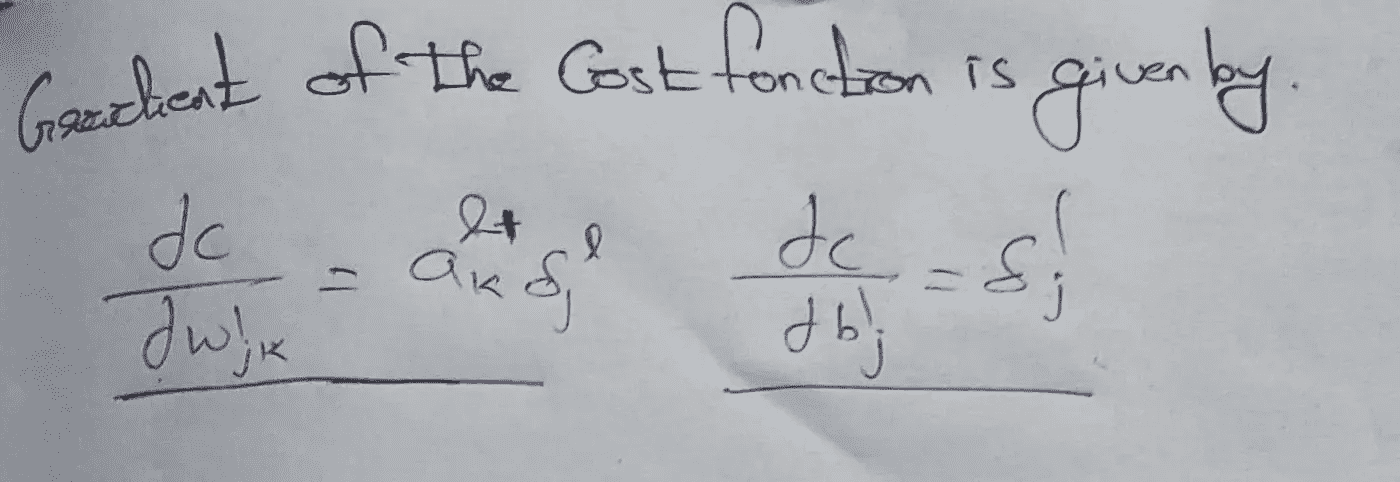 Gradient of the Cost function is given by.
dc/dw^l_jk = a^l+_k δ^l_j    dc/db^l_j = δ^l_j